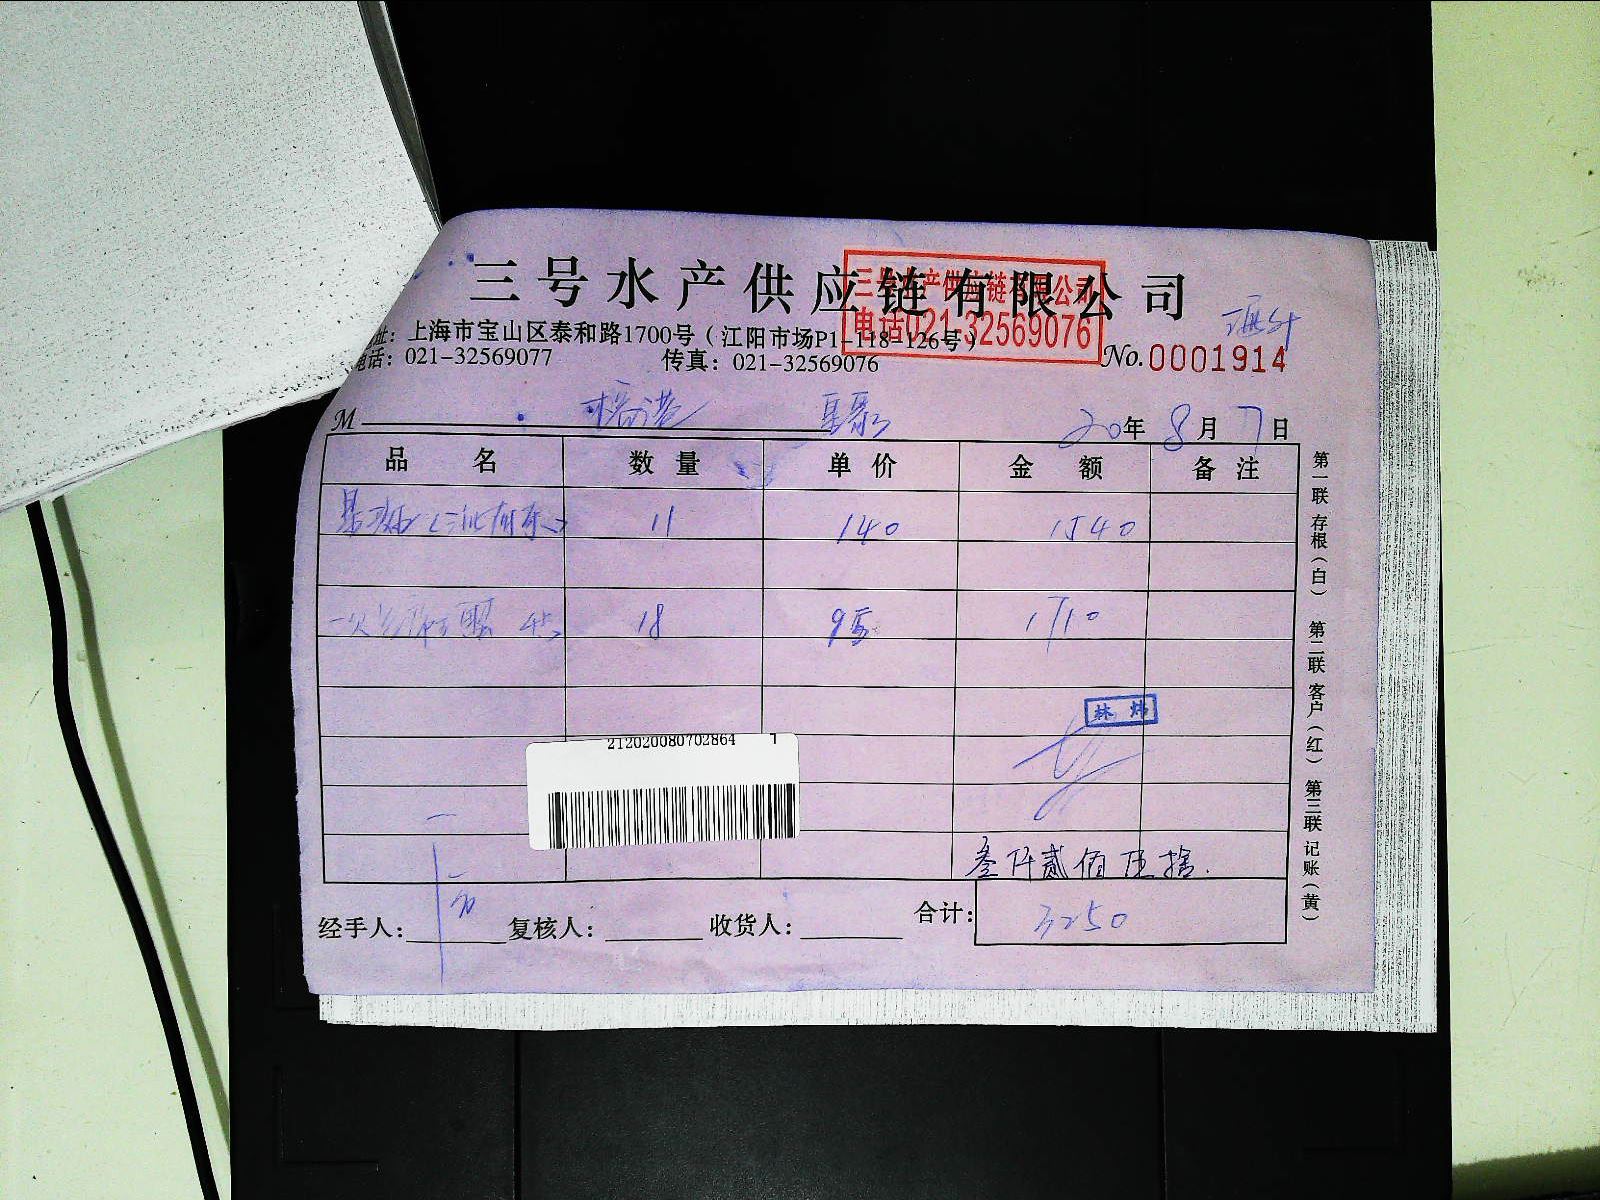 三号水产供应链有限公司
三号水产供应链有限公司
电话021-32569076
址：上海市宝山区泰和路1700号（江阳市场P1-118-126号）
电话：021-32569077 传真：021-32569076
No.0001914
M 20年8月7日
品名 数量 单价 金额 备注
11 140 1540
18 95 1710
林炜
212020080702864 1
叁仟贰佰伍拾
经手人： 复核人： 收货人： 合计：3250
第一联 存根（白） 第二联 客户（红） 第三联 记账（黄）